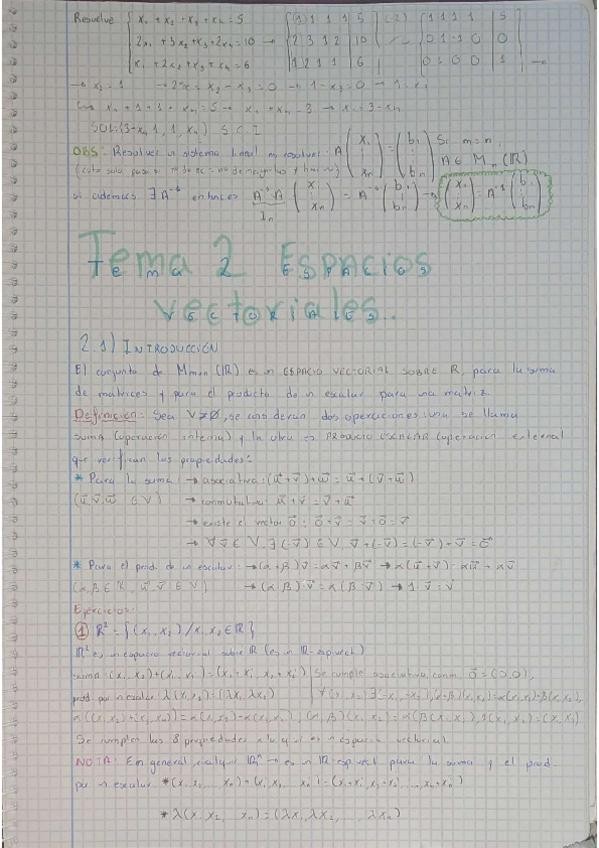 Resuelve { x₁ + x₂ + x₃ + x₄ = 5 | 1 1 1 1 | 5 | (-2) | 1 1 1 1 | 5
2x₁ + 3x₂ + x₃ + 2x₄ = 10 → | 2 3 1 2 | 10 | 0 1 -1 0 | 0
x₁ + 2x₂ + x₃ + x₄ = 6 | 1 2 1 1 | 6 | 0 1 0 0 | 1 →
→ x₂ = 1 → x₂ - x₃ = 0 → 1 - x₃ = 0 → 1 = x₃
x₁ + 1 + 1 + x₄ = 5 → x₁ + x₄ = 3 → x₁ = 3 - x₄
SOL: (3 - x₄, 1, 1, x₄) S.C.I
OBS: Resolver un sistema lineal es resolver: A (x₁ ⋮ xₙ) = (b₁ ⋮ bₙ) Si m = n,
A ∈ Mₙ (ℝ)
si además ∃ A⁻¹ entonces A⁻¹ A (x₁ ⋮ xₙ) = A⁻¹ (b₁ ⋮ bₙ) → (x₁ ⋮ xₙ) = A⁻¹ (b₁ ⋮ bₙ)
Iₙ
Tema 2 Espacios
vectoriales..
2.1) INTRODUCCIÓN
El conjunto de Mmxn (ℝ) es un ESPACIO VECTORIAL SOBRE ℝ, para la suma
de matrices y para el producto de un escalar para una matriz.
Definición: Sea V ≠ ∅, se consideran dos operaciones: una se llama
suma (operación interna) y la otra es PRODUCTO ESCALAR (operación externa)
que verifican las propiedades:
* Para la suma: → asociativa: (u⃗ + v⃗) + w⃗ = u⃗ + (v⃗ + w⃗)
(u⃗, v⃗, w⃗ ∈ V) → conmutativa: u⃗ + v⃗ = v⃗ + u⃗
→ existe el vector 0⃗: 0⃗ + v⃗ = v⃗ + 0⃗ = v⃗
→ ∀ v⃗ ∈ V, ∃ (-v⃗) ∈ V, v⃗ + (-v⃗) = (-v⃗) + v⃗ = 0⃗
* Para el prod. de un escalar: → (α + β) v⃗ = αv⃗ + βv⃗ → α(u⃗ + v⃗) = αu⃗ + αv⃗
(α, β ∈ ℝ, u⃗, v⃗ ∈ V) → (α · β) · v⃗ = α(β · v⃗) → 1 · v⃗ = v⃗
Ejercicios:
① ℝ² = {(x₁, x₂) / x₁, x₂ ∈ ℝ}
ℝ² es un espacio vectorial sobre ℝ (es un ℝ-esp.vect)
suma: (x₁, x₂) + (x₁', x₂') = (x₁ + x₁', x₂ + x₂') | Se cumple asociativa, conm, 0⃗ = (0,0),
prod. por un escalar λ(x₁, x₂) = (λx₁, λx₂)
Se cumplen las 8 propiedades es un espacio vectorial.
NOTA: En general, cualquier ℝⁿ → es un ℝ-esp.vect para la suma y el prod.
por un escalar * (x₁, x₂, ..., xₙ) + (x₁', x₂', ..., xₙ') = (x₁ + x₁', x₂ + x₂', ..., xₙ + xₙ')
* λ(x₁, x₂, ..., xₙ) = (λx₁, λx₂, ..., λxₙ)